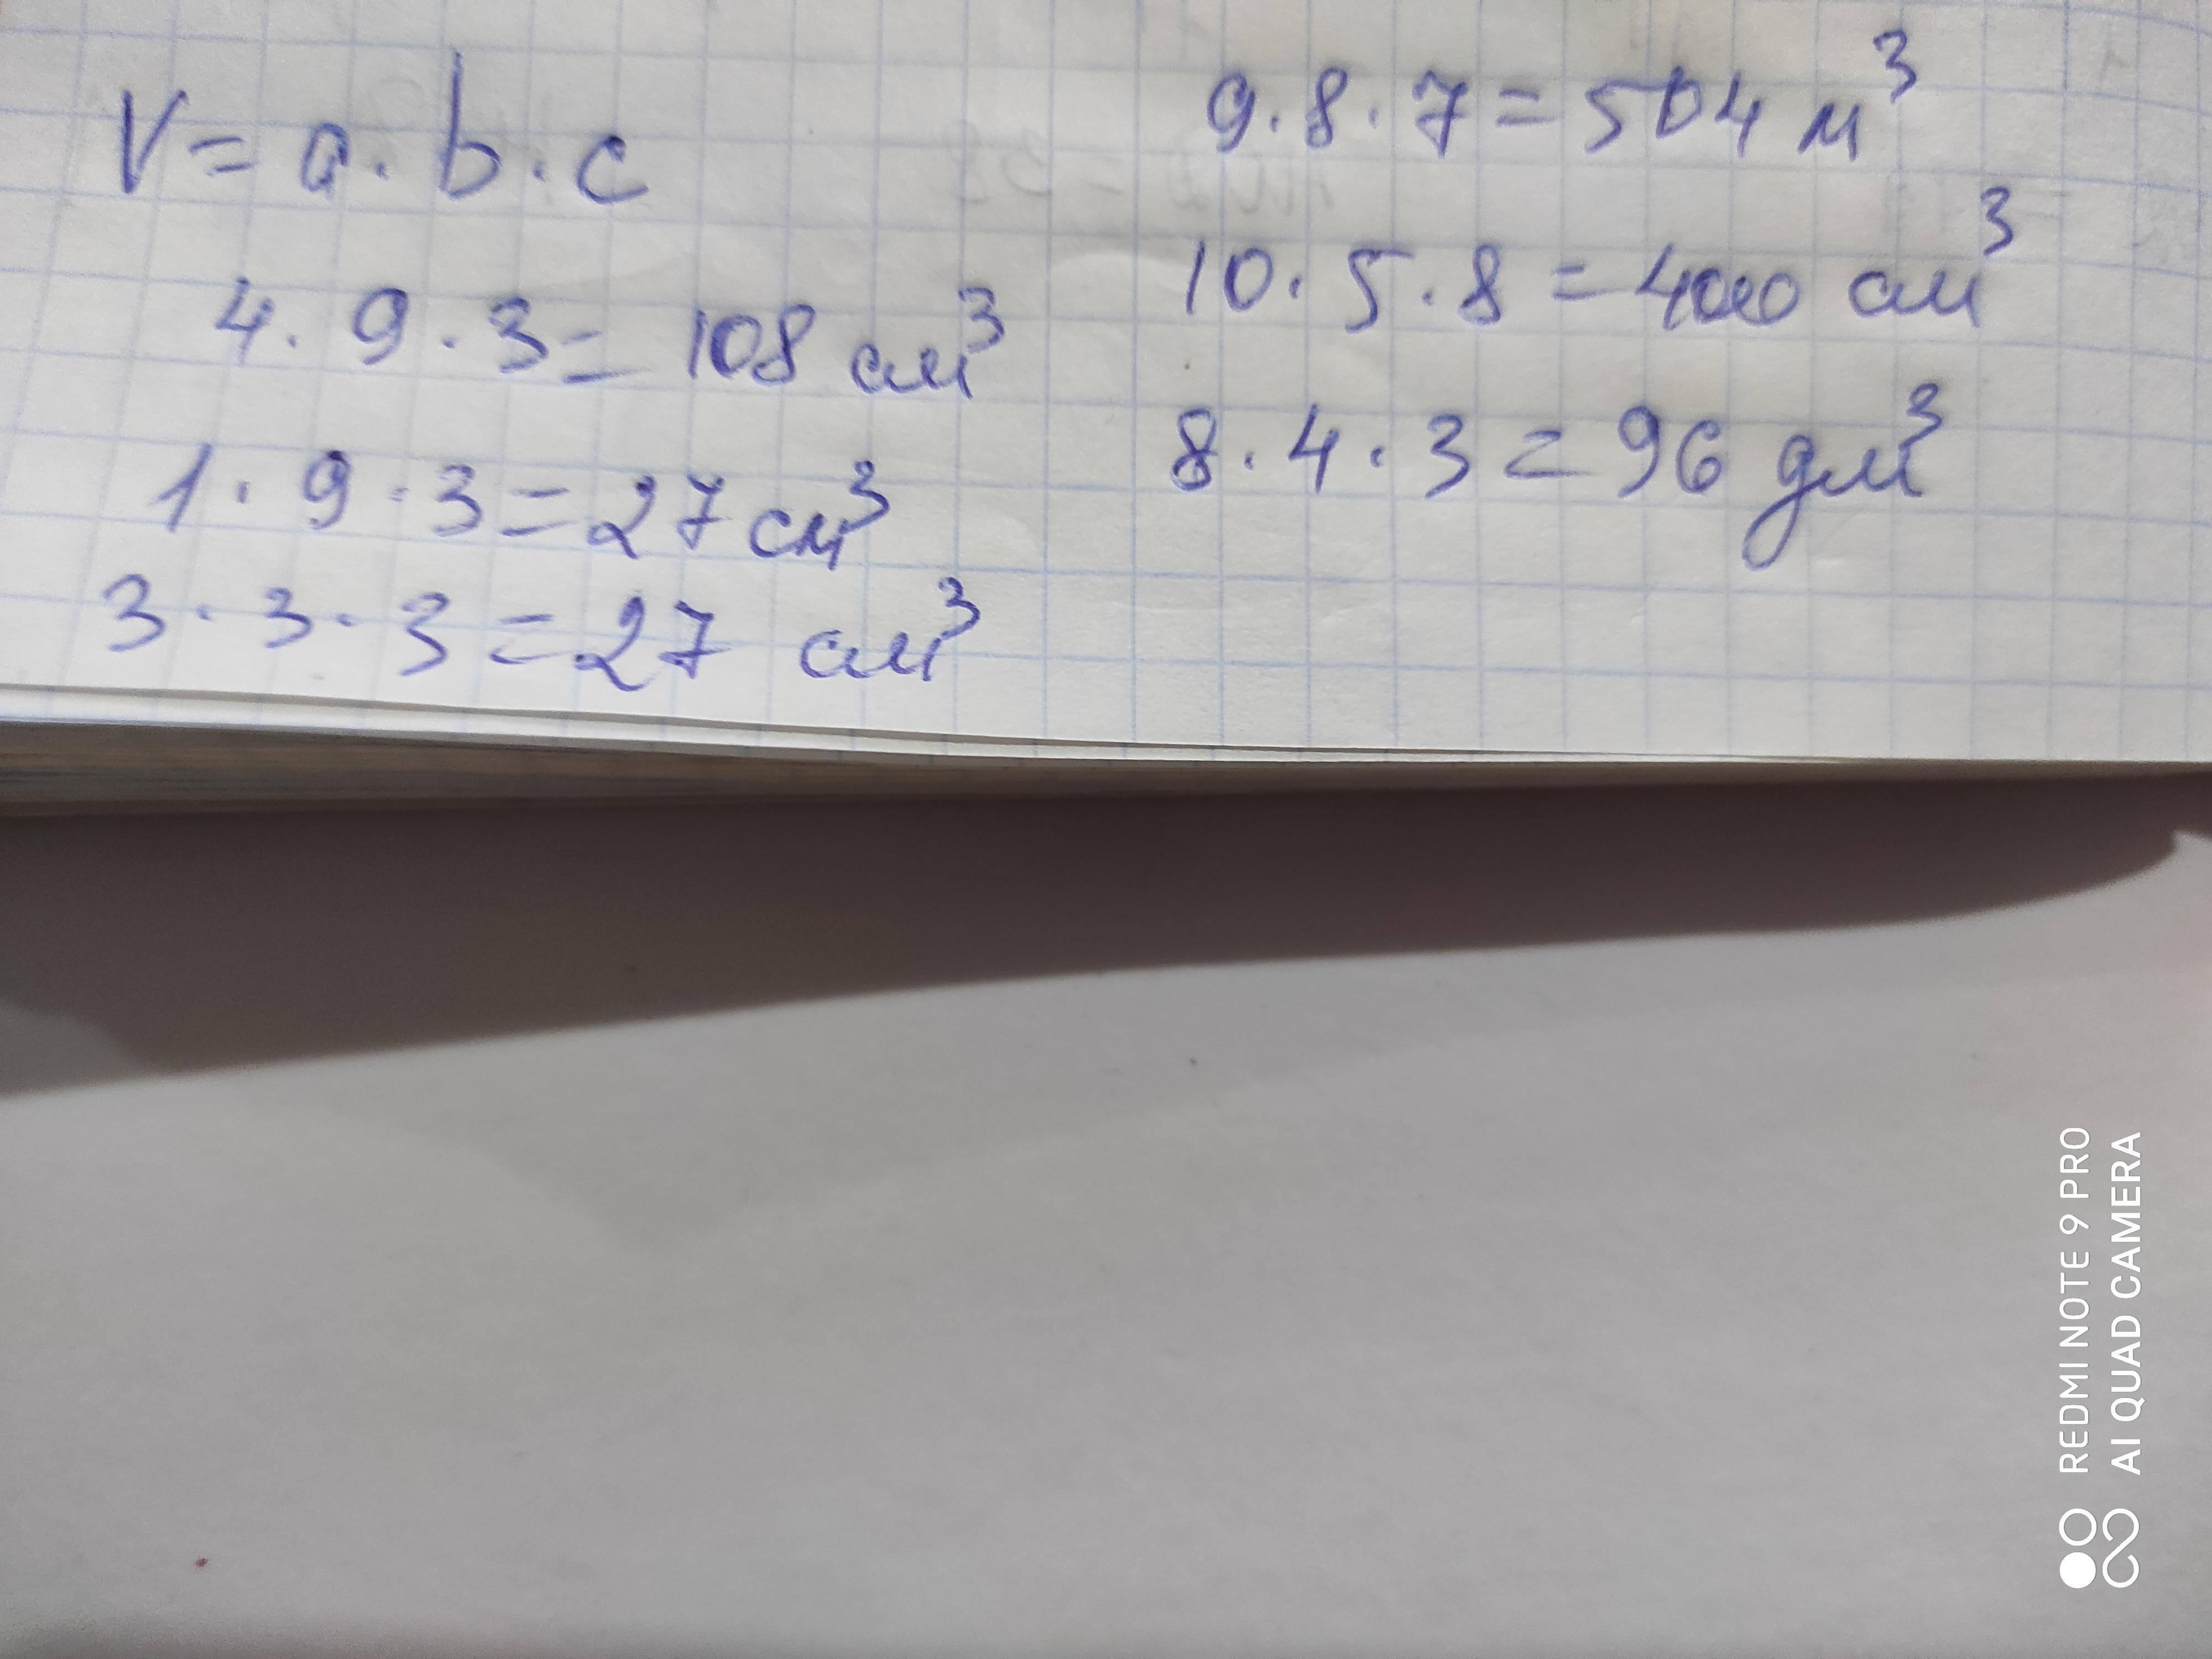 V = a · b · c
4 · 9 · 3 = 108 см³
1 · 9 · 3 = 27 см³
3 · 3 · 3 = 27 см³
9 · 8 · 7 = 504 м³
10 · 5 · 8 = 400 см³
8 · 4 · 3 = 96 дм³
REDMI NOTE 9 PRO
AI QUAD CAMERA